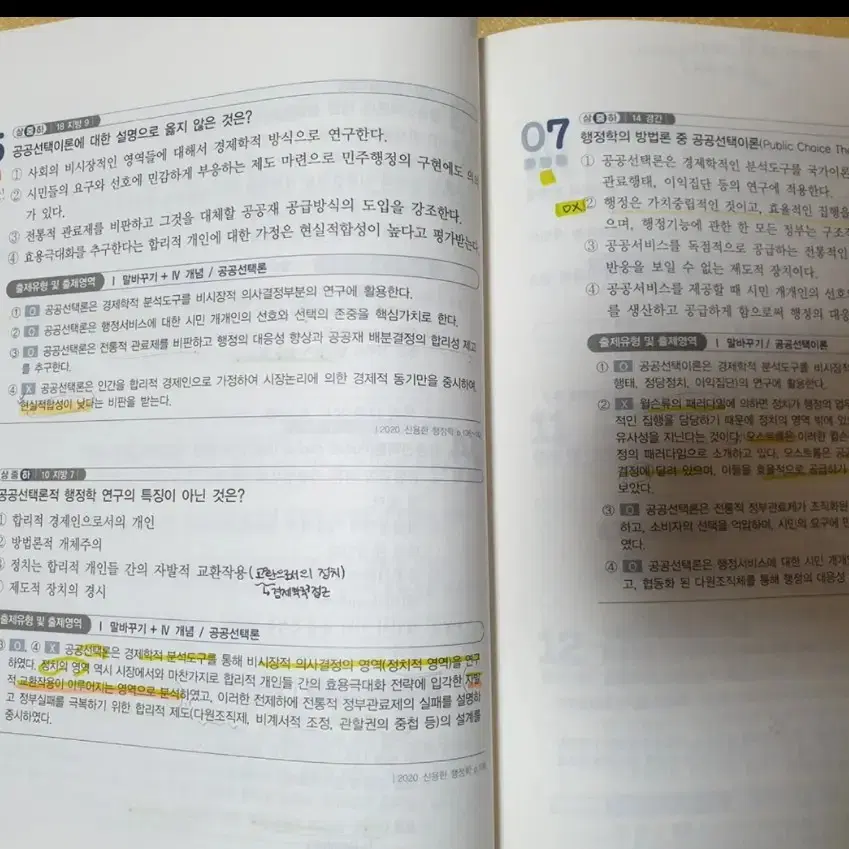 상 중 하 18 지방 9
공공선택이론에 대한 설명으로 옳지 않은 것은?
① 사회의 비시장적인 영역들에 대해서 경제학적 방식으로 연구한다.
② 시민들의 요구와 선호에 민감하게 부응하는 제도 마련으로 민주행정의 구현에도
가 있다.
③ 전통적 관료제를 비판하고 그것을 대체할 공공재 공급방식의 도입을 강조한다.
④ 효용극대화를 추구한다는 합리적 개인에 대한 가정은 현실적합성이 높다고 평가받는다
출제유형 및 출제영역 | Ⅰ 말바꾸기 + Ⅳ 개념 / 공공선택론
① O 공공선택론은 경제학적 분석도구를 비시장적 의사결정부분의 연구에 활용한다.
② O 공공선택론은 행정서비스에 대한 시민 개개인의 선호와 선택의 존중을 핵심가치로 한다.
③ O 공공선택론은 전통적 관료제를 비판하고 행정의 대응성 향상과 공공재 배분결정의 합리성 제고
를 추구한다.
④ X 공공선택론은 인간을 합리적 경제인으로 가정하여 시장논리에 의한 경제적 동기만을 중시하여
현실적합성이 낮다는 비판을 받는다.
| 2020 신용한 행정학
상 중 하 10 지방 7
공공선택론적 행정학 연구의 특징이 아닌 것은?
① 합리적 경제인으로서의 개인
② 방법론적 개체주의
③ 정치는 합리적 개인들 간의 자발적 교환작용 (교환으로서의 정치)
↳경제학적 접근
④ 제도적 장치의 경시
출제유형 및 출제영역 | Ⅰ 말바꾸기 + Ⅳ 개념 / 공공선택론
③ O, ④ X 공공선택론은 경제학적 분석도구를 통해 비시장적 의사결정의 영역(정치적 영역)을 연구
하였다. 정치의 영역 역시 시장에서와 마찬가지로 합리적 개인들 간의 효용극대화 전략에 입각한 자발
적 교환작용이 이루어지는 영역으로 분석하였고, 이러한 전제하에 전통적 정부관료제의 실패를 설명하
고 정부실패를 극복하기 위한 합리적 제도(다원조직제, 비계서적 조정, 관할권의 중첩 등)의 설계를
중시하였다.
| 2020 신용한 행정학
07
상 중 하 14 경간
행정학의 방법론 중 공공선택이론(Public Choice The
① 공공선택론은 경제학적인 분석도구를 국가이론
관료행태, 이익집단 등의 연구에 적용한다.
OX
② 행정은 가치중립적인 것이고, 효율적인 집행을
으며, 행정기능에 관한 한 모든 정부는 구조적
③ 공공서비스를 독점적으로 공급하는 전통적인
반응을 보일 수 없는 제도적 장치이다.
④ 공공서비스를 제공할 때 시민 개개인의 선호
를 생산하고 공급하게 함으로써 행정의 대응
출제유형 및 출제영역 | Ⅰ 말바꾸기 / 공공선택이론
① O 공공선택이론은 경제학적 분석도구를 비시장적
행태, 정당정치, 이익집단)의 연구에 활용한다.
② X 윌슨류의 패러다임에 의하면 정치가 행정의 업무
적인 집행을 담당하기 때문에 정치의 영역 밖에 있
유사성을 지닌다는 것이다. 오스트롬은 이러한 윌슨
정의 패러다임으로 소개하고 있다. 오스트롬은 공공
결정에 달려 있으며, 이들을 효율적으로 공급하기
보았다.
③ O 공공선택론은 전통적 정부관료제가 조직화된
하고, 소비자의 선택을 억압하며, 시민의 요구에 민
였다.
④ O 공공선택론은 행정서비스에 대한 시민 개개인
고, 협동화 된 다원조직체를 통해 행정의 대응성